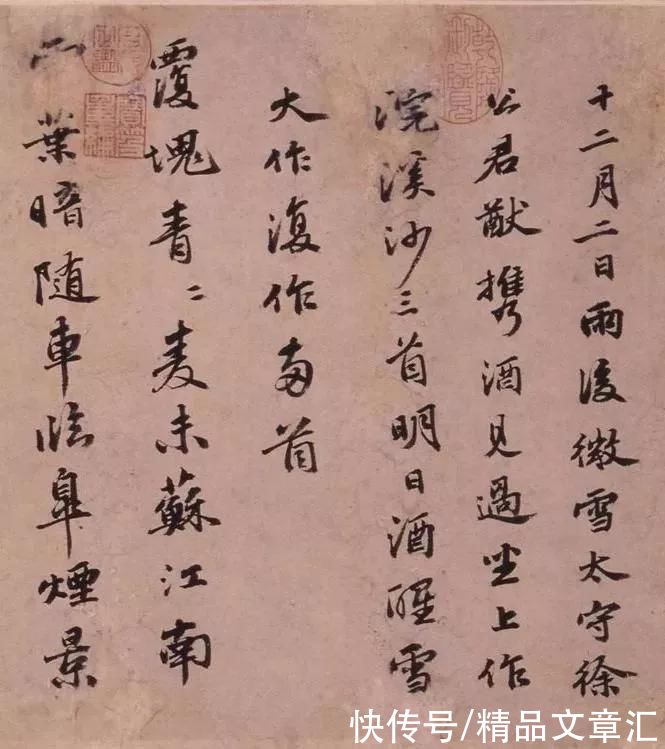 十二月二日雨後微雪太守徐
公君猷攜酒見過坐上作
浣溪沙三首明日酒醒雪
大作復作兩首
覆塊青〻麦未蘇江南
雲葉暗随車臨皋煙景
快传号/精品文章汇